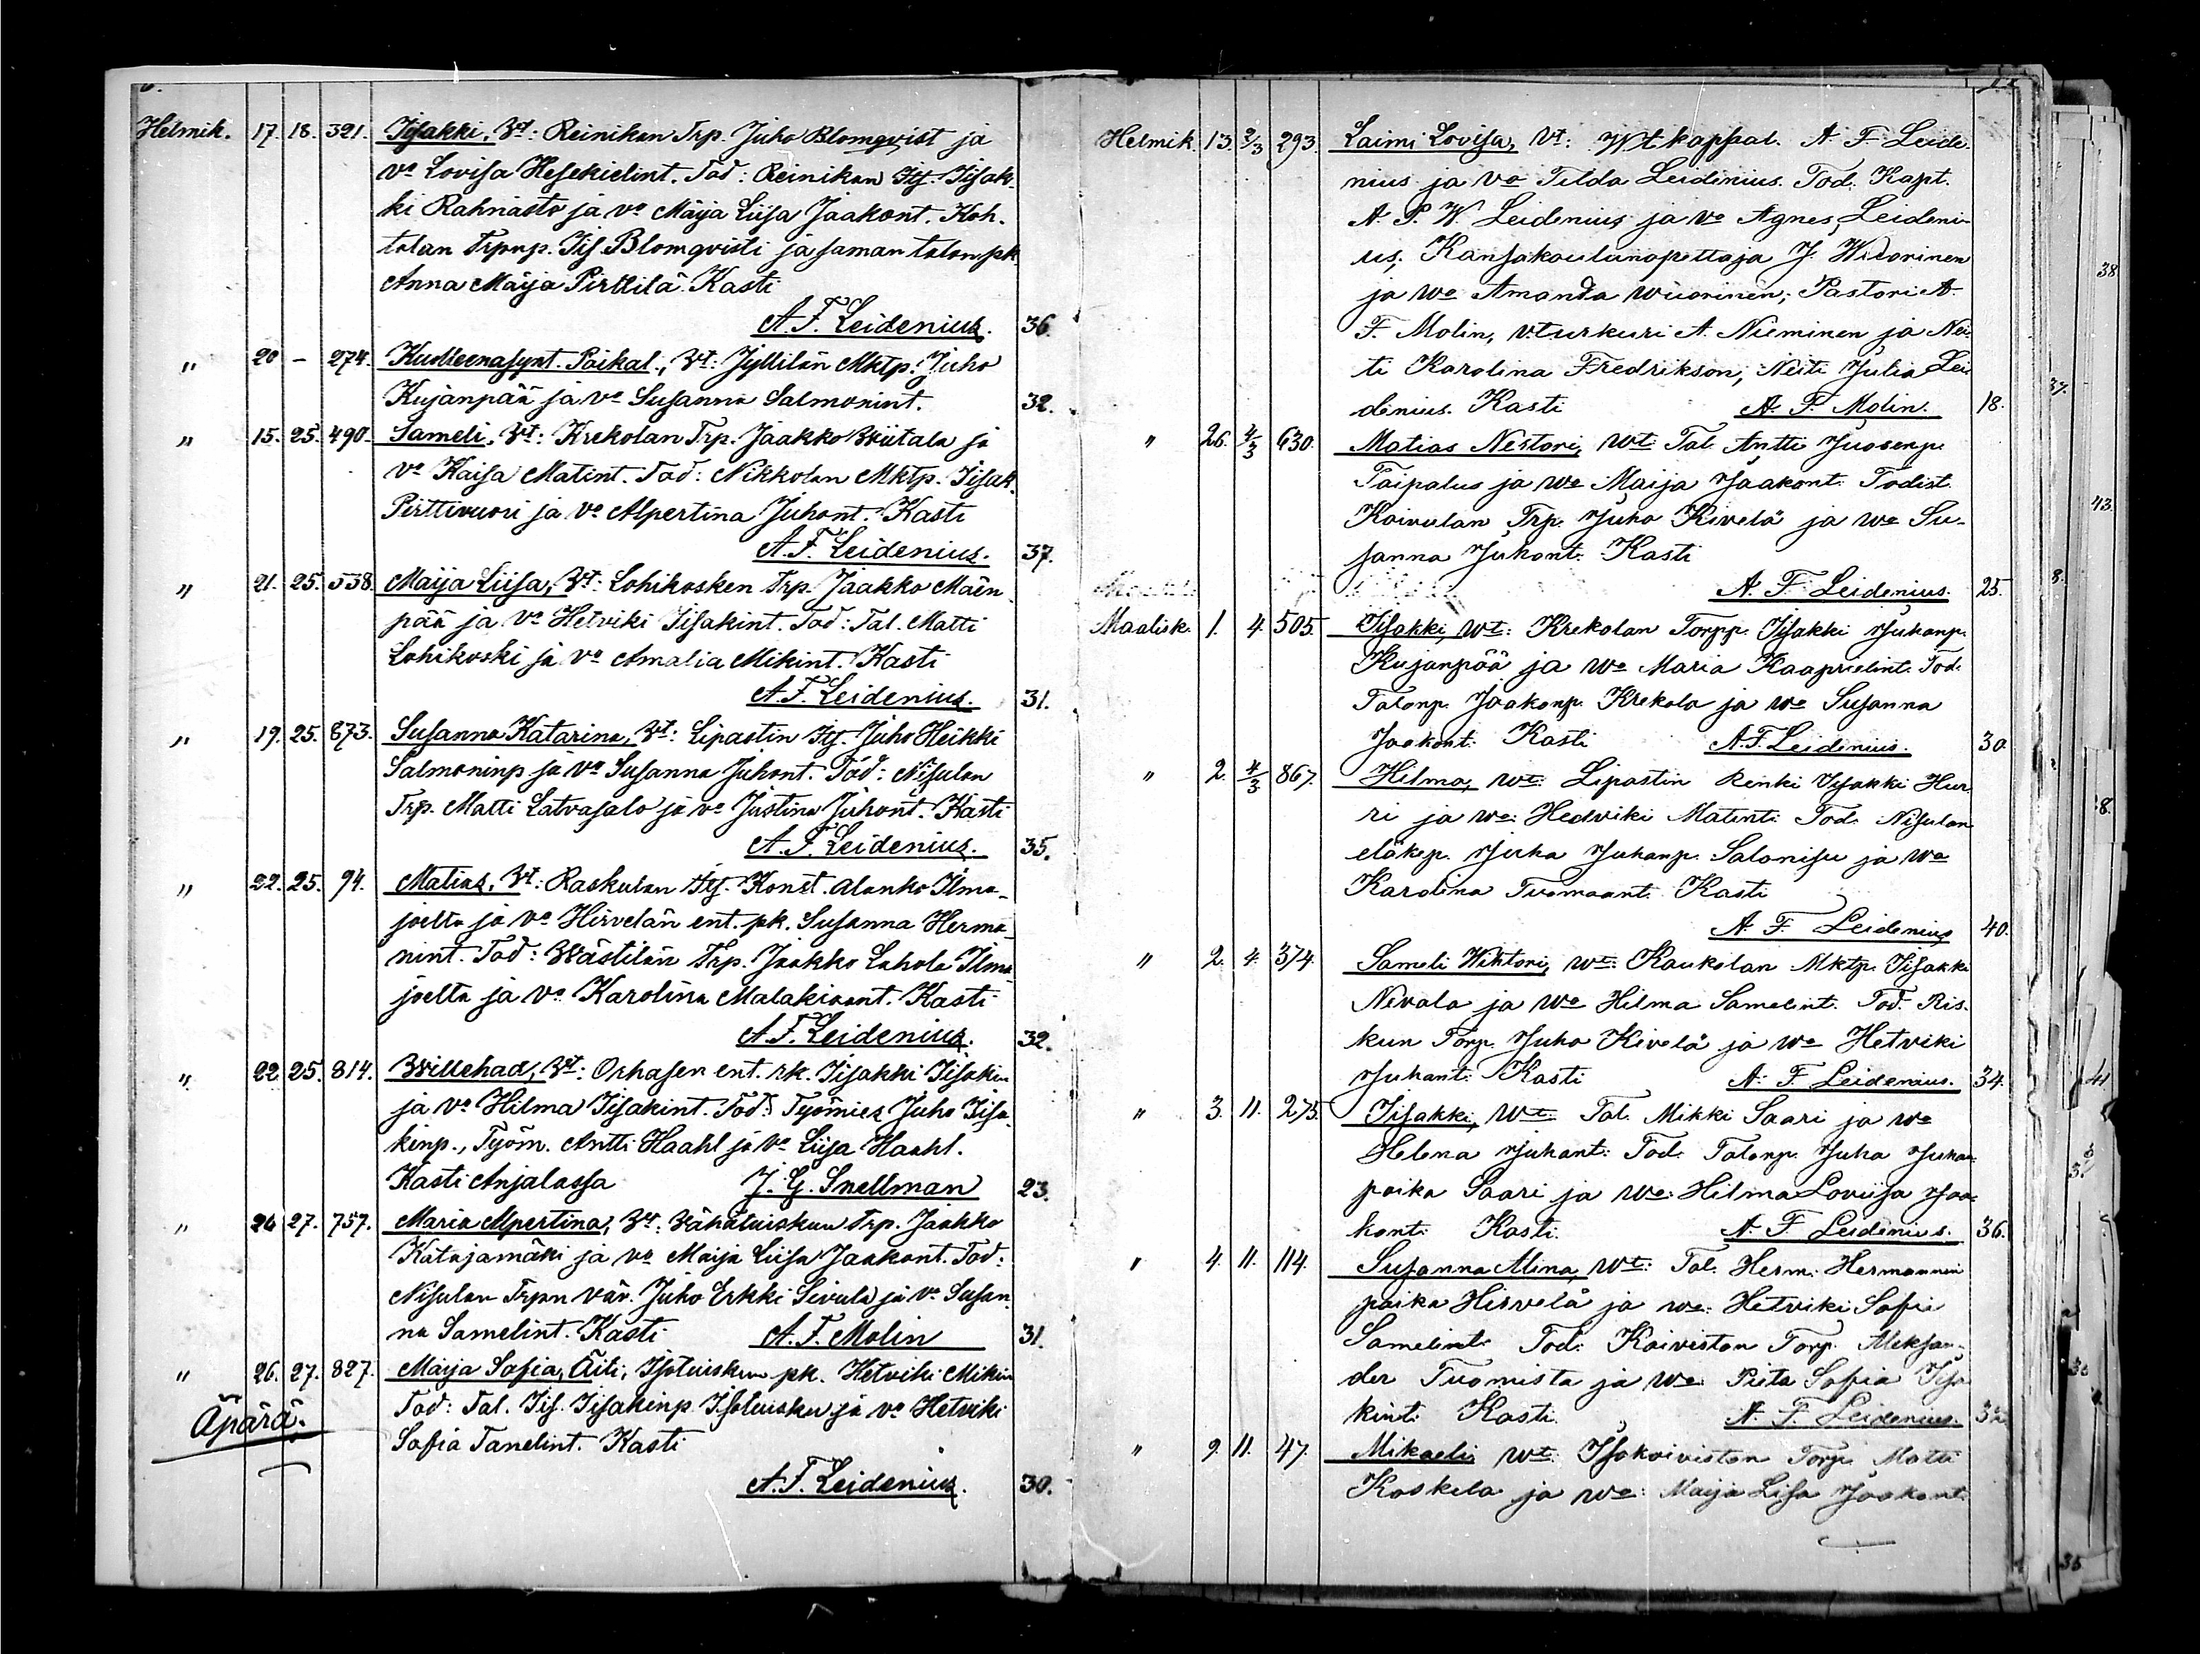 Helmik. 17. 18. 321. Iisakki, Vt: Reinikan Trp. Juho Blomqvist ja
vo Lovisa Hesekielint. Tod: Reinikan Itj. Iisak-
ki Rahnasto ja vo Maija Liisa Jaakont. Koh-
talan Trpnp. Iis. Blomqvisti ja saman talon pk
Anna Maija Pirttilä. Kasti
A. F. Leidenius. 36.
" 20 – 274. Kuolleenasynt. Poikal., Vt: Jyllilän Mktp. Juho
Kujanpää ja vo Susanna Salmonint. 32.
" 15. 25. 490. Sameli, Vt: Krekolan Trp. Jaakko Wiitala ja
vo Kaisa Matint. Tod: Nikkolan Mktp. Iisak
Pirttivuori ja vo Alpertina Juhont. Kasti
A. F. Leidenius. 37.
" 21. 25. 538. Maija Liisa, Vt: Lohikosken Trp. Jaakko Mäen-
pää ja vo Hetviki Iisakint. Tod: Tal. Matti
Lohikoski ja vo Amalia Mikint. Kasti
A. F. Leidenius. 31.
" 19. 25. 873. Susanna Katarina, Vt: Lipastin Itj. Juho Heikki
Salmoninp ja vo Susanna Juhont. Tod: Nisulan
Trp. Matti Latvasalo ja vo Justina Juhont. Kasti
A. F. Leidenius. 35.
" 22. 25. 94. Matias, Vt: Raskulan Itj. Konst. Alanko Ilma-
joelta ja vo Hirvelän ent. pk. Susanna Herma-
nint. Tod: Wästilän Trp. Jaakko Lahola Ilma-
joelta ja vo Karolina Malakiaant. Kasti
A. F. Leidenius. 32.
" 22 25. 814. Willehad, Vt: Orhasen ent. rk. Iisakki Iisakin
ja vo Hilma Iisakint. Tod: Työmies Juho Iisa-
kinp., Työm. Antti Haahl ja vo Liisa Haahl.
Kasti Anjalassa J. G. Snellman 23.
" 24 27. 757. Maria Alpertina, Vt. Vähätuiskun Trp. Jaakko
Katajamäki ja vo Maija Liisa Jaakont. Tod:
Nisulan Trpn väv. Juho Erkki Sivula ja vo Susan-
na Samelint. Kasti A. F. Molin 31.
" 26. 27. 827. Maija Sofia, Äiti, Isotuiskun pk. Hetviki Mikin
Äpärä: Tod: Tal. Iis. Iisakinp. Isotuisku ja vo Hetviki
Sofia Tanelint. Kasti
A. F. Leidenius. 30.
Helmik. 13. 2/3 293. Laimi Lovisa, Vt: Wt kappal. A. F. Leide-
nius ja vo Tilda Leidenius. Tod. Kapt.
A. P. W. Leidenius ja vo Agnes Leideni-
us, Kansakoulunopettaja J. Widorinen
ja wo Amanda Wuorinen; Pastori A.
F. Molin, v.t.urkuri A. Nieminen ja Nei-
ti Karolina Fredrikson; Neiti Julia Lei-
denius. Kasti A. F. Molin. 18.
" 26. 4/3 630. Matias Nestori, wt: Tal. Antti Juosenp.
Taipalus ja wo Maija Jaakont. Todist.
Koivulan Trp. Juho Kivelä ja wo Su-
sanna Juhont. Kasti
A. F. Leidenius. 25.
Maalisk. 1. 4. 505. Iisakki, wt: Krekolan Torpp. Iisakki Juhanp.
Kujanpää ja wo Maria Kaaprielint. Tod.
Talonp. Jaakonp. Krekola ja wo Susanna
Jaakont. Kasti A. F. Leidenius. 30.
" 2. 4/3 867. Hilma, wt: Lipastin Renki Iisakki Hur-
ri ja wo: Hedviki Matint. Tod. Nisulan
eläkp. Juha Juhanp. Salonisu ja wo
Karolina Tuomaant. Kasti
A. F. Leidenius 40.
" 2. 4. 374. Sameli Wihtori, wt: Kaukolan Mktp. Iisakki
Nevala ja wo Hilma Samelint. Tod. Ris-
kun Torp. Juho Kivelä ja wo Hetviki
Juhant. Kasti A. F. Leidenius. 34.
" 3. 11. 275. Iisakki, wt: Tal. Mikki Saari ja wo
Helena Juhant: Tod. Talonp. Juha Juhan-
poika Saari ja wo: Hilma Loviisa Jaa-
kont. Kasti. A. F. Leidenius. 36.
" 4. 11. 114. Susanna Miina, wt: Tal. Herm. Hermannin
poika Hirvelä ja wo: Hetviki Sofia
Samelint. Tod: Koiviston Torp. Aleksan-
der Tuomista ja wo: Pieta Sofia Iisa-
kint. Kasti. A. F. Leidenius. 32
" 9. 11. 47. Mikaeli wt: Isokoiviston Torp. Matti
Koskela ja wo: Maija Lisa Jaakont.